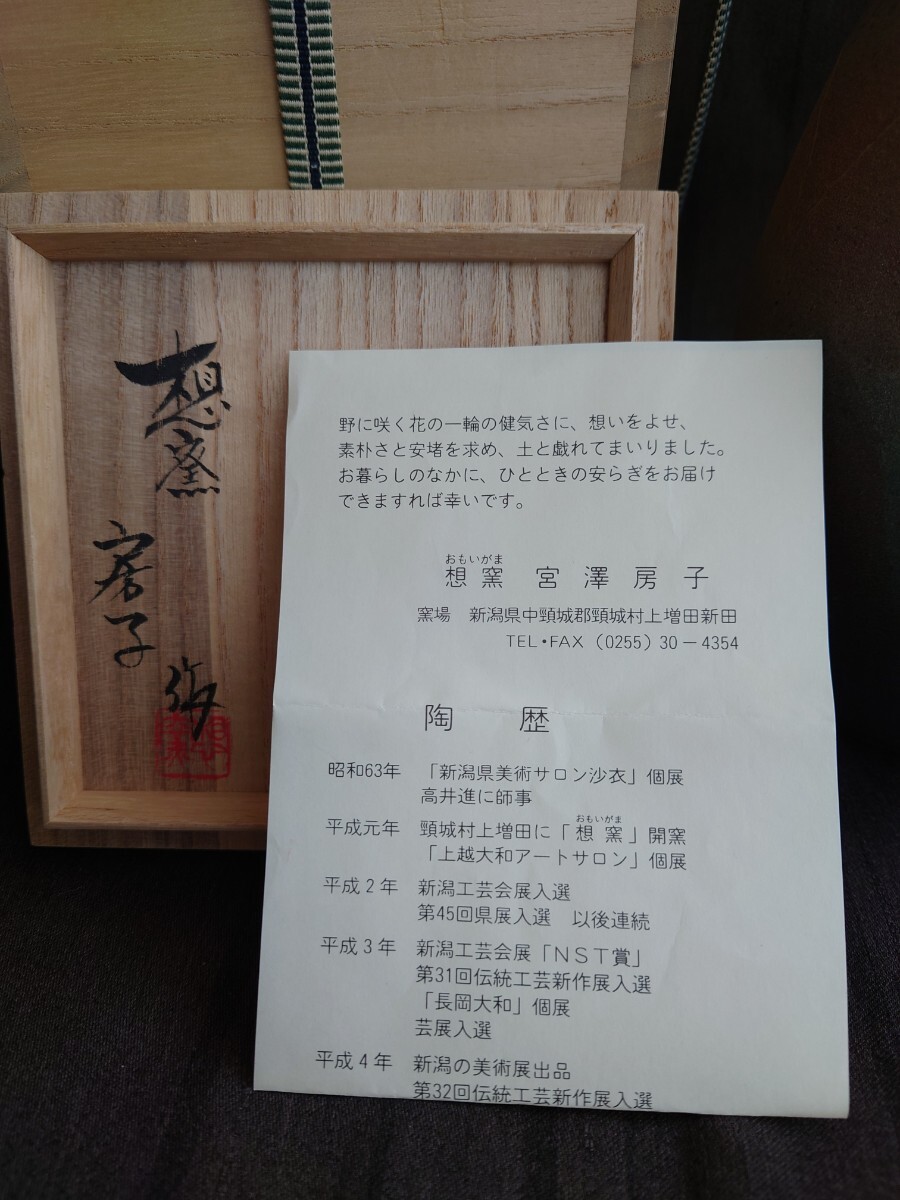 想窯
房子
作
野に咲く花の一輪の健気さに、想いをよせ、
素朴さと安堵を求め、土と戯れてまいりました。
お暮らしのなかに、ひとときの安らぎをお届け
できますれば幸いです。
おもいがま
想窯 宮澤房子
窯場 新潟県中頸城郡頸城村上増田新田
TEL・FAX (0255) 30-4354
陶歴
昭和63年 「新潟県美術サロン沙衣」個展
高井進に師事
おもいがま
平成元年 頸城村上増田に「想窯」開窯
「上越大和アートサロン」個展
平成2年 新潟工芸会展入選
第45回県展入選 以後連続
平成3年 新潟工芸会展「NST賞」
第31回伝統工芸新作展入選
「長岡大和」個展
芸展入選
平成4年 新潟の美術展出品
第32回伝統工芸新作展入選